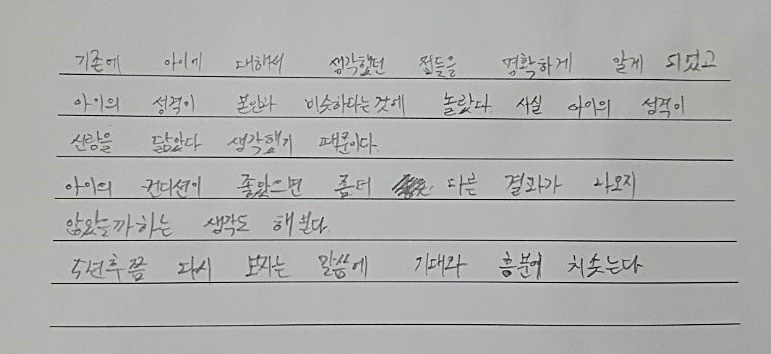 기존에 아이에 대해서 생각했던 점들을 명확하게 알게 되었고
아이의 성격이 본인과 비슷하다는것에 놀랐다. 사실 아이의 성격이
신랑을 닮았다 생각했기 때문이다.
아이의 컨디션이 좋았으면 좀더 다른 결과가 나오지
않았을까하는 생각도 해본다.
5년후쯤 다시 보자는 말씀에 기대와 흥분이 치솟는다